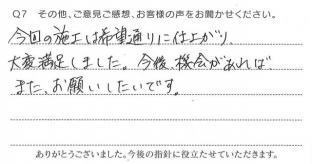 Q7 その他、ご意見ご感想、お客様の声をお聞かせください。
今回の施工は希望通りに仕上がり、
大変満足しました。今後、機会があれば、
また、お願いしたいです。
ありがとうございました。今後の指針に役立たせていただきます。